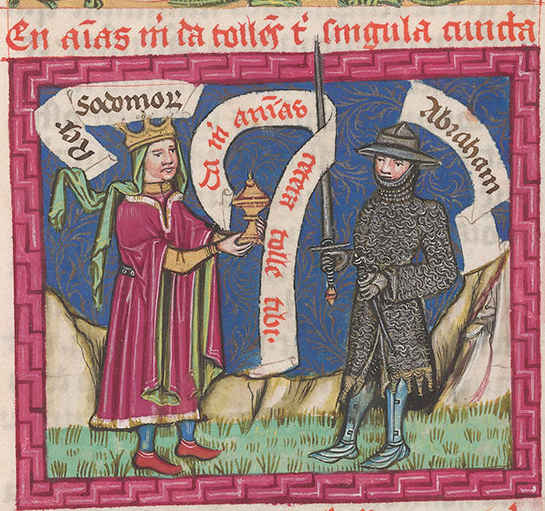 En aīas m̄ da tolles t̄ singula cuncta
Rex sodomoꝝ
Da m̄ anīas cetera tolle tibi.
Abraham